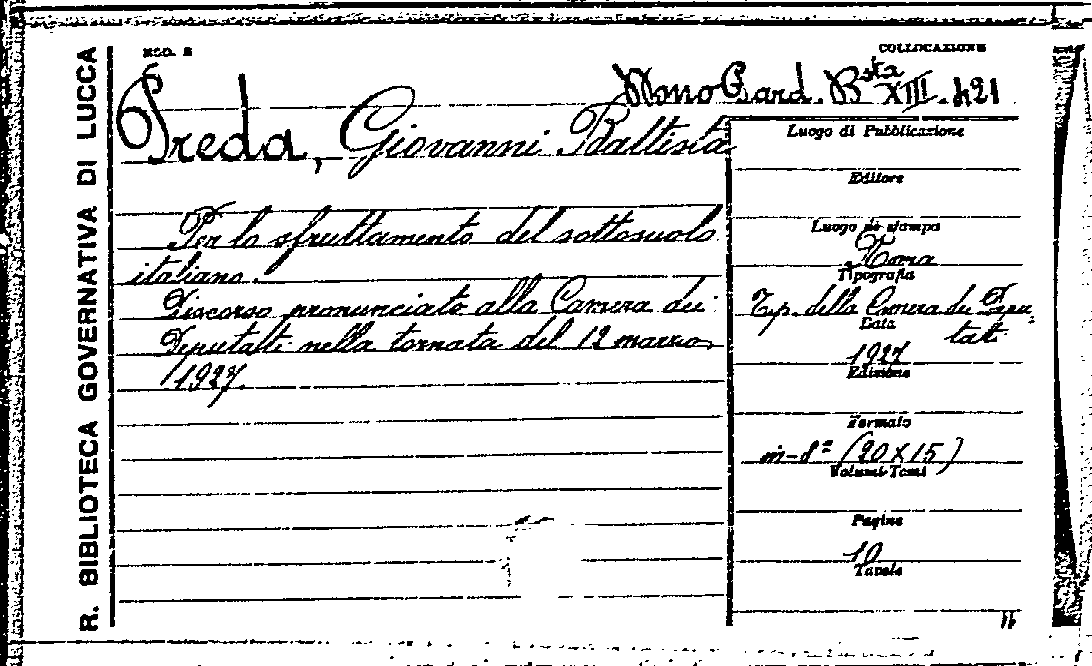 R. BIBLIOTECA GOVERNATIVA DI LUCCA
MOD. B
COLLOCAZIONE
Mono Gard. Bsta XIII. 421
Preda, Giovanni Battista
Per lo sfruttamento del sottosuolo
italiano.
Discorso pronunciato alla Camera dei
Deputati nella tornata del 12 marzo
1927.
Luogo di Pubblicazione
Editore
Luogo di stampa
Roma
Tipografia
Tip. della Camera dei Depu
tati
Data
1927
Edizione
Formato
in-8° (20 x 15)
Volumi-Tomi
Pagine
10
Tavole